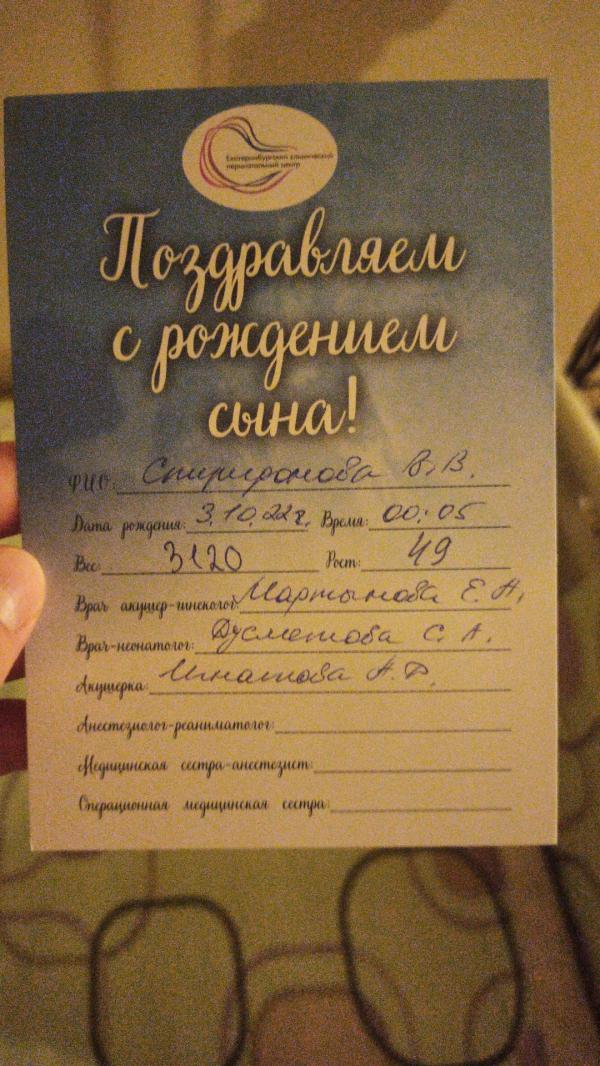 Екатеринбургский клинический
перинатальный центр
Поздравляем
с рождением
сына!
ФИО: Спиридонова В.В.
Дата рождения: 3.10.22г. Время: 00:05
Вес: 3120 Рост: 49
Врач акушер-гинеколог: Мартынова Е.А.
Врач-неонатолог: Дусметова С.А.
Акушерка: Игнатова А.Ф.
Анестезиолог-реаниматолог:
Медицинская сестра-анестезист:
Операционная медицинская сестра: